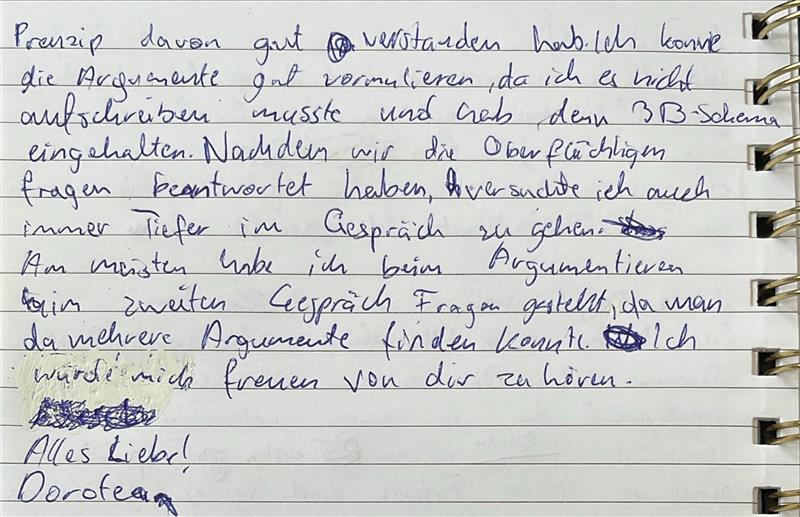 Prenzip davon gut verstanden hab. Ich konnte
die Argumente gut vormulieren, da ich es nicht
aufschreiben musste und hab denn 3B-Schema
eingehalten. Nachdem wir die Oberflächligen
fragen beantwortet haben, versuchte ich auch
immer Tiefer im Gespräch zu gehen.
Am meisten habe ich beim Argumentieren
im zweiten Gespräch Fragen gestellt, da man
da mehrere Argumente finden konnte. Ich
würde mich freuen von dir zu hören.
Alles Liebe!
Dorotea